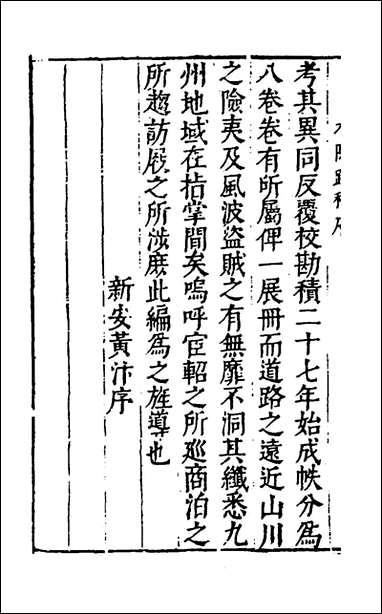 考其異同反覆校勘積二十七年始成帙分爲
八卷卷有所屬俾一展冊而道路之遠近山川
之險夷及風波盜賊之有無靡不洞其纖悉九
州地域在指掌間矣嗚呼宦軺之所廵商泊之
所趨訪屐之所涉庶此編爲之旌導也
新安黃汴序